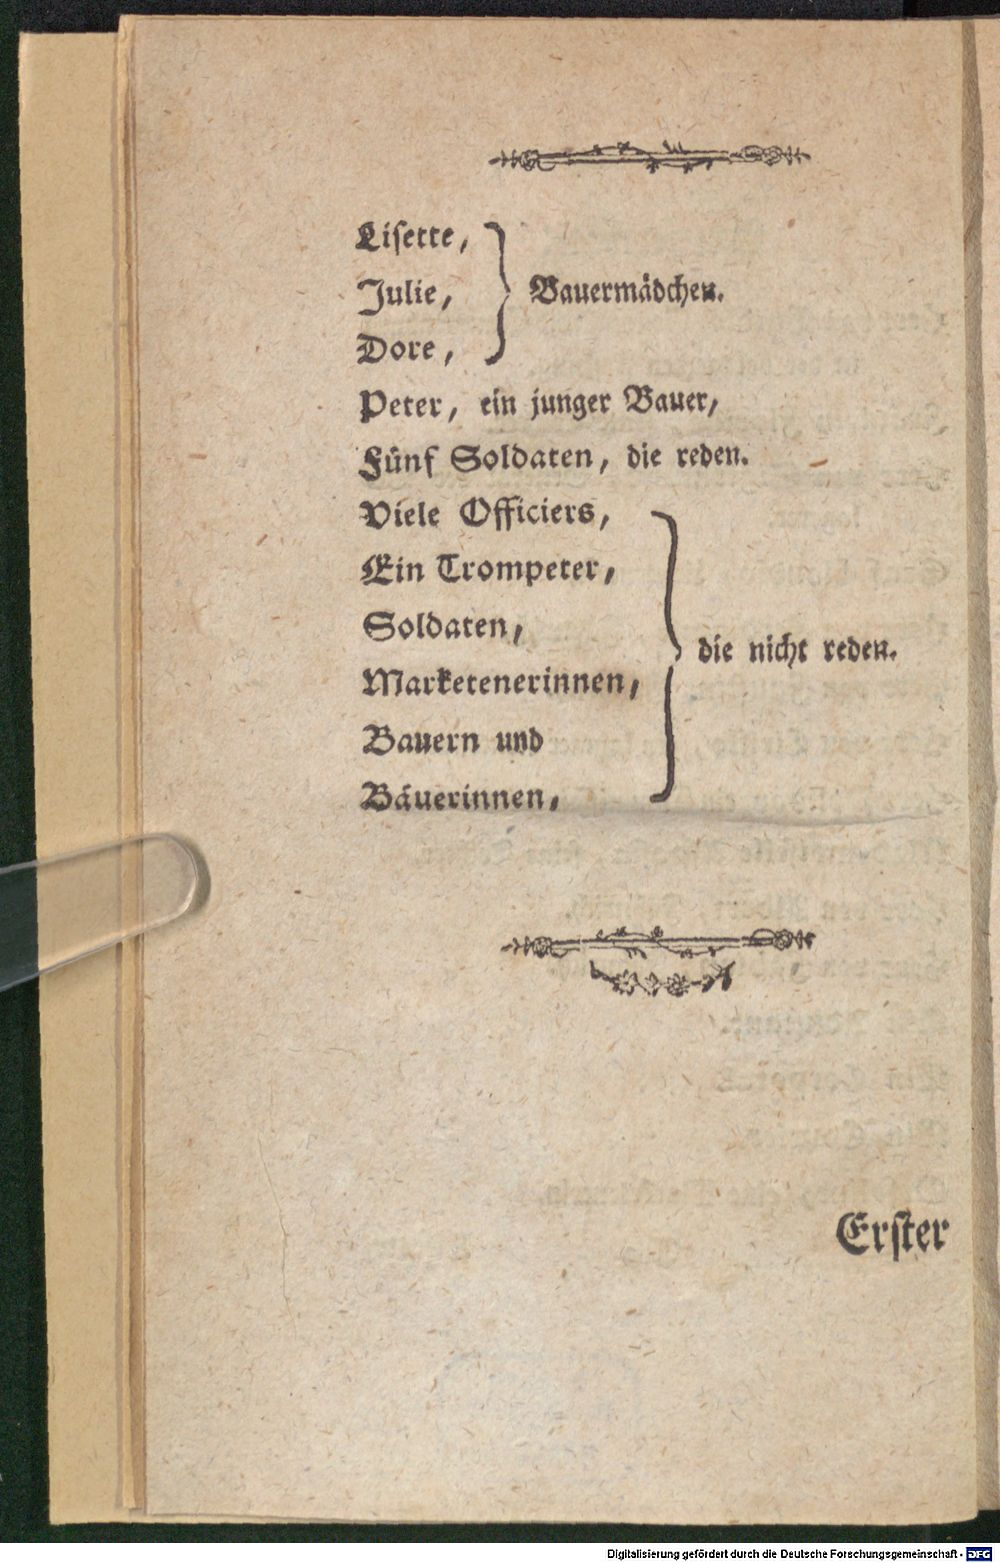 Lisette,
Julie,
Dore,
Bauermädchen.
Peter, ein junger Bauer,
Fünf Soldaten, die reden.
Viele Officiers,
Ein Trompeter,
Soldaten,
Marketenerinnen,
Bauern und
Bäuerinnen,
die nicht reden.
Erster
Digitalisierung gefördert durch die Deutsche Forschungsgemeinschaft - DFG